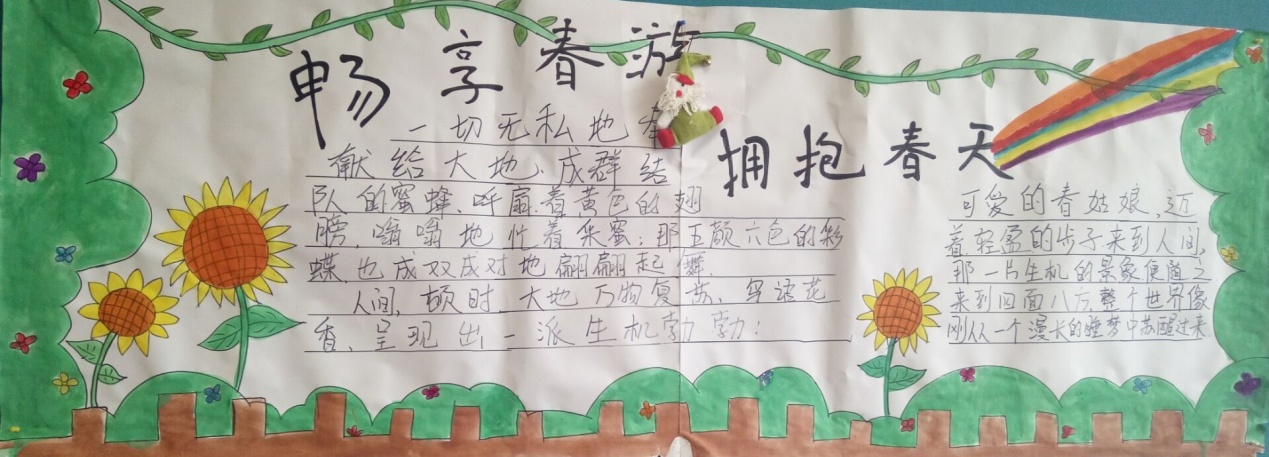 畅享春游
拥抱春天
一切无私地奉
献给大地、成群结
队的蜜蜂、呼扇着黄色的翅
膀，嗡嗡地忙着采蜜；那五颜六色的彩
蝶也成双成对地翩翩起舞.
人间，顿时，大地万物复苏、鸟语花
香、呈现出一派生机勃勃！
可爱的春姑娘，迈
着轻盈的步子来到人间，
那一片生机的景象便随之
来到四面八方，整个世界像
刚从一个漫长的睡梦中苏醒过来